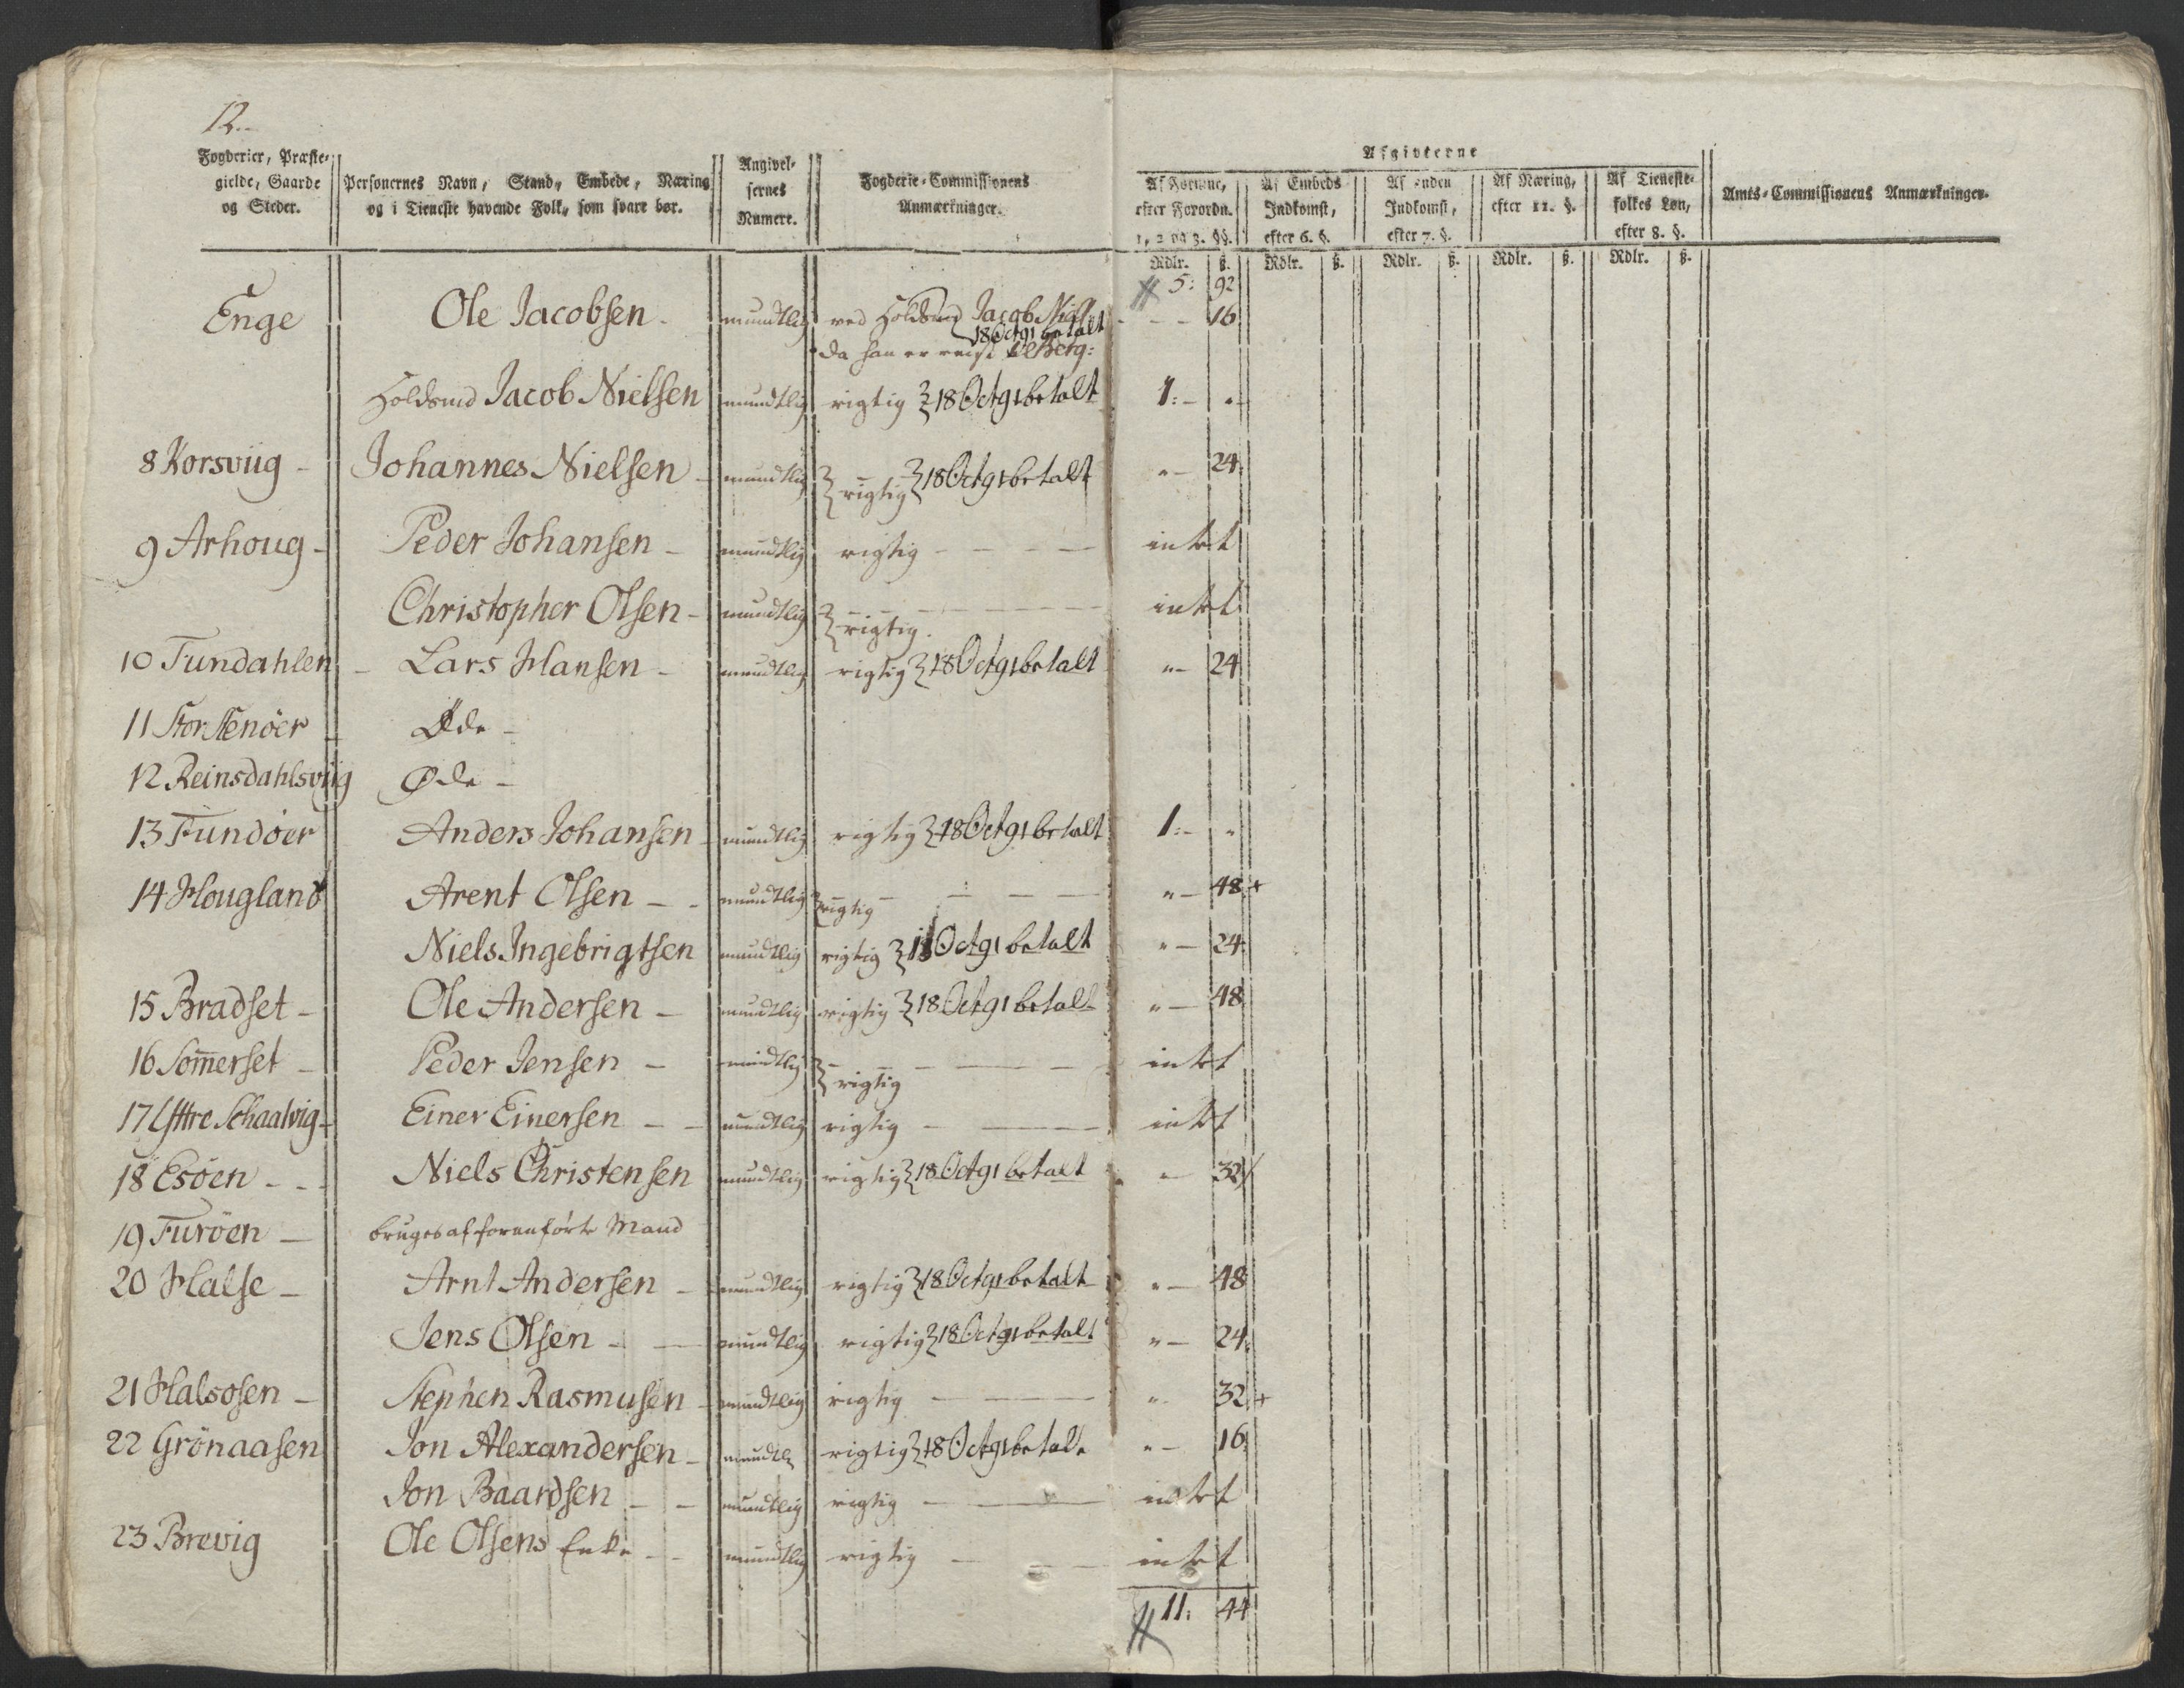 12.
Fogderier, Præste-
gielde, Gaarde
og Steder.
Personernes Navn, Stand, Embede, Næring
og i Tieneste havende Folk, som svare bør.
Angivel-
sernes
Numere.
Fogderie-Commissionens
Anmærkninger.
Afgivterne
Af Formue,
efter Forordn.
1, 2 og 3. §§.
Af Embeds
Indkomst,
efter 6. §.
Af anden
Indkomst,
efter 7. §.
Af Næring,
efter 11. §.
Af Tieneste-
folkes Løn,
efter 8. §.
Amts-Commissionens Anmærkninger.
Rdlr. ß. Rdlr. ß. Rdlr. ß. Rdlr. ß. Rdlr. ß.
5: 92
Enge Ole Jacobsen - mundtlig ved Holdsmd Jacob Niels - - 16
18 Oct 91 betalt
da han er reist til Berg:
Holdsmd Jacob Nielsen mundtlig rigtig } 18 Oct 91 betalt 1:- "
8 Korsviig - Johannes Nielsen - mundtlig rigtig } 18 Oct 91 betalt "- 24
9 Arhoug - Peder Johansen - mundtlig rigtig - - - intet
Christopher Olsen - mundtlig rigtig - - - intet
10 Tundahlen - Lars Hansen - mundtlig rigtig } 18 Oct 91 betalt "- 24
11 Storstenöer - Øde -
12 Reinsdahlsviig Øde -
13 Fundöer Anders Johansen - mundtlig rigtig } 18 Oct 91 betalt 1:- "
14 Hougland Arent Olsen - - mundtlig rigtig - - - "- 48 +
Niels Ingebrigtsen mundtlig rigtig } 18 Oct 91 betalt "- 24
15 Bradset - Ole Andersen - mundtlig rigtig } 18 Oct 91 betalt "- 48
16 Som̅erset - Peder Jensen - mundtlig rigtig - - - intet
17 Yttre Schaalvig - Einer Einersen - - mundtlig rigtig - - intet
18 Esöen - - Niels Christensen mundtlig rigtig } 18 Oct 91 betalt "- 32
19 Furöen - bruges af foranførte Mand
20 Halse - Arnt Andersen - mundtlig rigtig } 18 Oct 91 betalt "- 48
Jens Olsen - - mundtlig rigtig } 18 Oct 91 betalt "- 24
21 Halsosen - Stephen Rasmusen - mundtlig rigtig - - "- 32 +
22 Grönaasen Jon Alexandersen - mundtlig rigtig } 18 Oct 91 betalt "- 16
Jon Baardsen - - mundtlig rigtig - - intet
23 Brevig Ole Olsens Enke - - mundtlig rigtig - - intet
11: 44